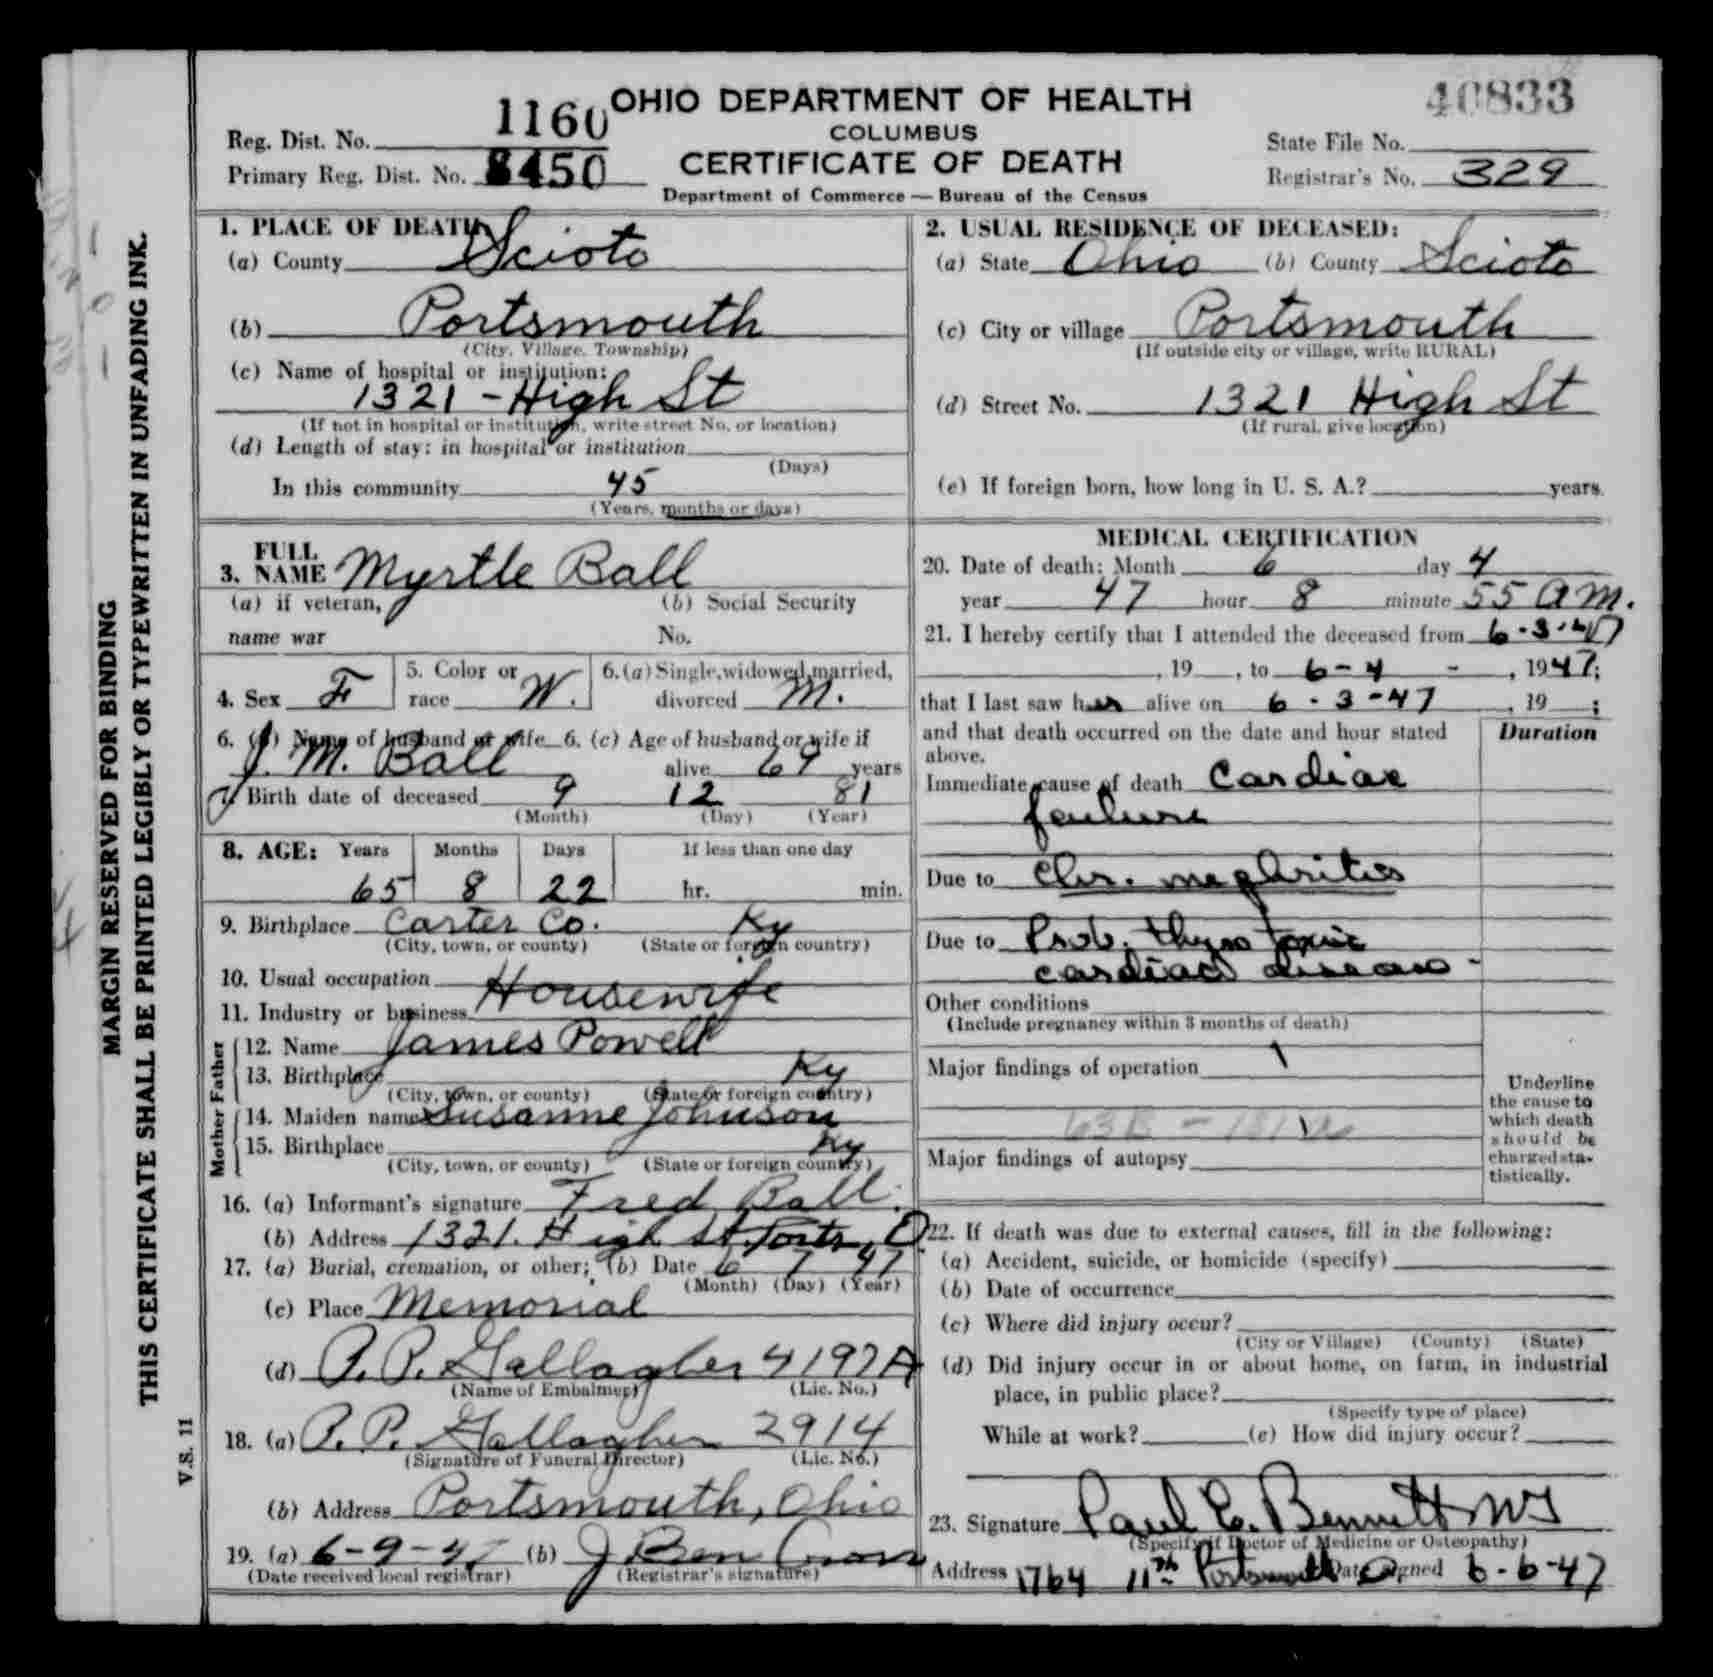 40833
1160 OHIO DEPARTMENT OF HEALTH
Reg. Dist. No. COLUMBUS State File No.
Primary Reg. Dist. No. 8450 CERTIFICATE OF DEATH Registrar's No. 329
Department of Commerce — Bureau of the Census
1. PLACE OF DEATH
(a) County Scioto
(b) Portsmouth
(City, Village, Township)
(c) Name of hospital or institution:
1321 - High St
(If not in hospital or institution, write street No. or location)
(d) Length of stay: in hospital or institution
(Days)
In this community 45
(Years, months or days)
2. USUAL RESIDENCE OF DECEASED:
(a) State Ohio (b) County Scioto
(c) City or village Portsmouth
(If outside city or village, write RURAL)
(d) Street No. 1321 High St
(If rural, give location)
(e) If foreign born, how long in U. S. A.? years.
3. FULL NAME Myrtle Ball
(a) if veteran, (b) Social Security
name war No.
4. Sex F 5. Color or race W. 6. (a) Single, widowed, married, divorced M.
6. (b) Name of husband or wife 6. (c) Age of husband or wife if
J. M. Ball alive 69 years
7. Birth date of deceased 9 12 81
(Month) (Day) (Year)
8. AGE: Years Months Days If less than one day
65 8 22 hr. min.
9. Birthplace Carter Co. Ky
(City, town, or county) (State or foreign country)
10. Usual occupation Housewife
11. Industry or business
Father
12. Name James Powell
13. Birthplace Ky
(City, town, or county) (State or foreign country)
Mother
14. Maiden name Susanne Johnson
15. Birthplace Ky
(City, town, or county) (State or foreign country)
16. (a) Informant's signature Fred Ball.
(b) Address 1321. High St. Ports, O
17. (a) Burial, cremation, or other; (b) Date 6 7 47
(Month) (Day) (Year)
(c) Place Memorial
(d) P. P. Gallagher 4197A
(Name of Embalmer) (Lic. No.)
18. (a) P. P. Gallagher 2914
(Signature of Funeral Director) (Lic. No.)
(b) Address Portsmouth, Ohio
19. (a) 6-9-47 (b) J Ben
(Date received local registrar) (Registrar's signature)
MEDICAL CERTIFICATION
20. Date of death: Month 6 day 4
year 47 hour 8 minute 55 AM.
21. I hereby certify that I attended the deceased from 6-3-47
, 19 , to 6-4 - , 1947;
that I last saw her alive on 6-3-47 , 19 ;
and that death occurred on the date and hour stated above. Duration
Immediate cause of death Cardiac
failure
Due to Chr. nephritis
Due to Prob. thyro toxic
cardiac disease -
Other conditions
(Include pregnancy within 3 months of death)
Major findings of operation
63B - 131
Major findings of autopsy
Underline
the cause to
which death
should be
charged sta-
tistically.
22. If death was due to external causes, fill in the following:
(a) Accident, suicide, or homicide (specify)
(b) Date of occurrence
(c) Where did injury occur?
(City or Village) (County) (State)
(d) Did injury occur in or about home, on farm, in industrial
place, in public place?
(Specify type of place)
While at work? (e) How did injury occur?
23. Signature Paul E. Bennett MD
(Specify if Doctor of Medicine or Osteopathy)
Address 1764 11th Portsmouth O. Date signed 6-6-47
MARGIN RESERVED FOR BINDING
THIS CERTIFICATE SHALL BE PRINTED LEGIBLY OR TYPEWRITTEN IN UNFADING INK.
V.S. 11